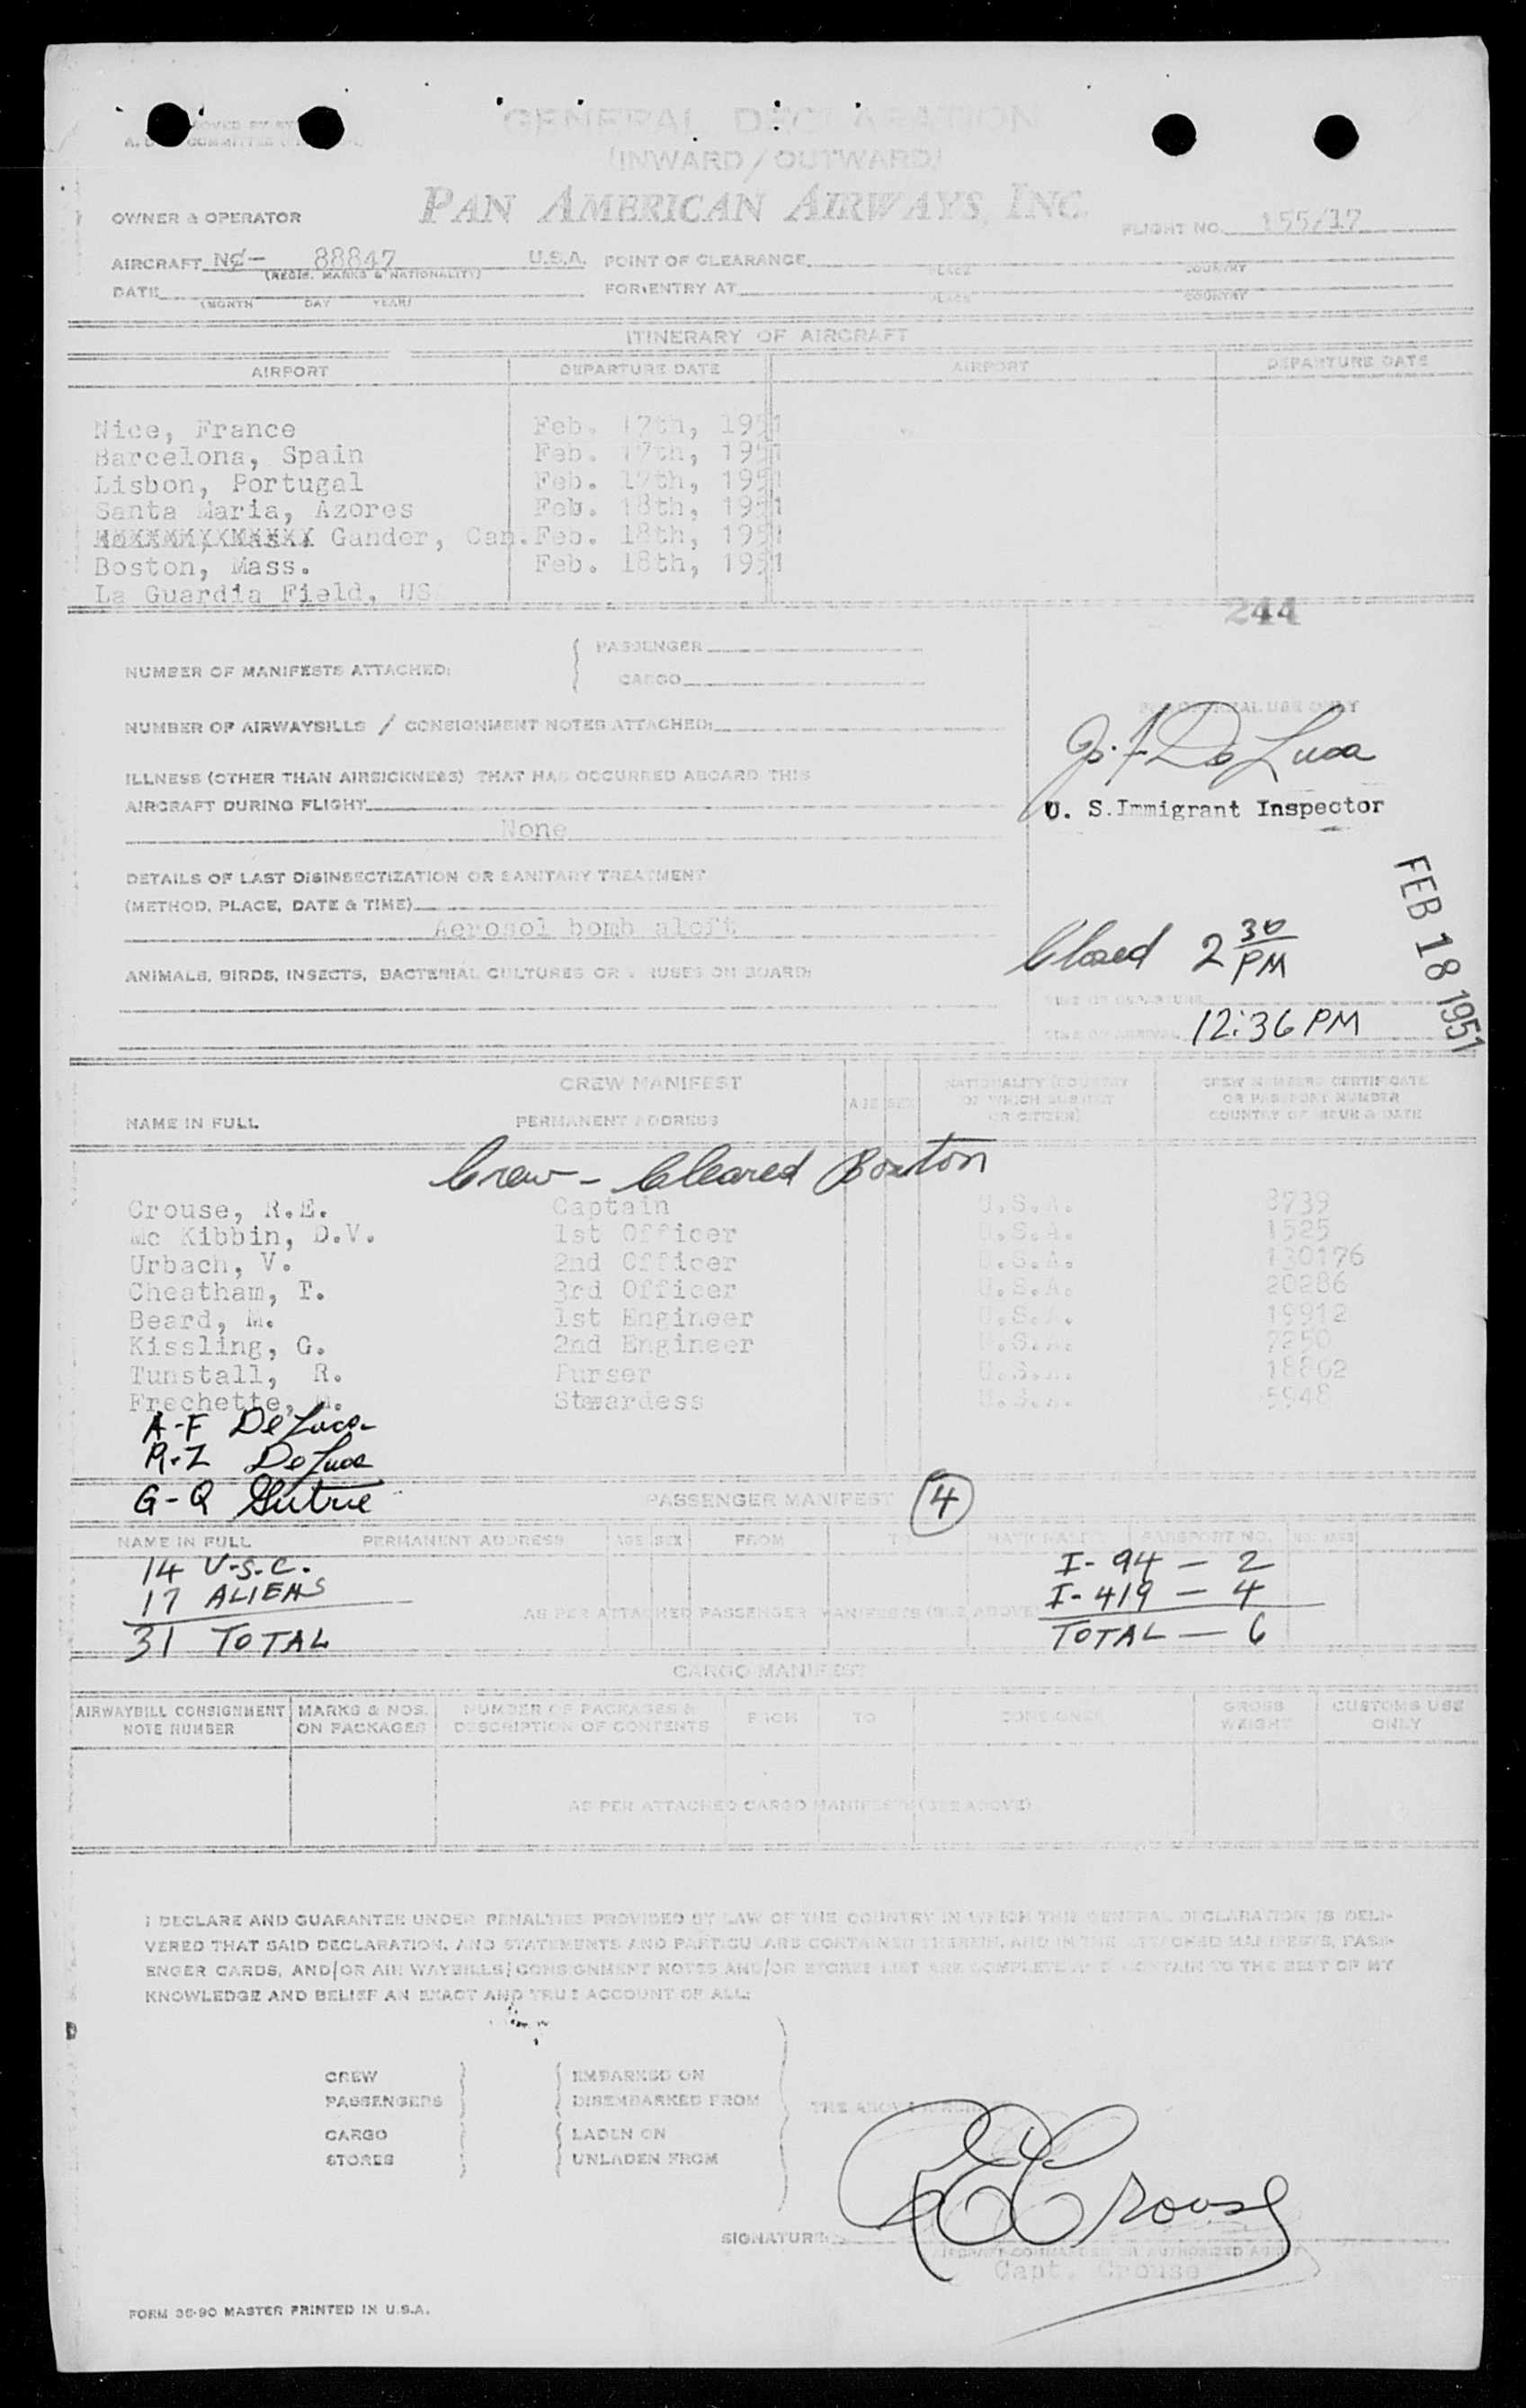 GENERAL DECLARATION
(INWARD / OUTWARD)
OWNER & OPERATOR PAN AMERICAN AIRWAYS, INC. FLIGHT NO. 155/17
AIRCRAFT NC- 88847 U.S.A. POINT OF CLEARANCE
(REGIS. MARKS & NATIONALITY) PLACE COUNTRY
DATE FOR ENTRY AT
(MONTH DAY YEAR) PLACE COUNTRY
ITINERARY OF AIRCRAFT
AIRPORT DEPARTURE DATE AIRPORT DEPARTURE DATE
Nice, France Feb. 17th, 1951
Barcelona, Spain Feb. 17th, 1951
Lisbon, Portugal Feb. 17th, 1951
Santa Maria, Azores Feb. 18th, 1951
Gander, Can. Feb. 18th, 1951
Boston, Mass. Feb. 18th, 1951
La Guardia Field, US
244
NUMBER OF MANIFESTS ATTACHED: PASSENGER
CARGO
FOR OFFICIAL USE ONLY
NUMBER OF AIRWAYBILLS / CONSIGNMENT NOTES ATTACHED:
De Luca
U. S. Immigrant Inspector
ILLNESS (OTHER THAN AIRSICKNESS) THAT HAS OCCURRED ABOARD THIS
AIRCRAFT DURING FLIGHT
None
DETAILS OF LAST DISINSECTIZATION OR SANITARY TREATMENT
(METHOD, PLACE, DATE & TIME)
Aerosol bomb aloft
FEB 18 1951
Closed 2 30 PM
ANIMALS, BIRDS, INSECTS, BACTERIAL CULTURES OR VIRUSES ON BOARD:
TIME OF DEPARTURE
TIME OF ARRIVAL 12:36 PM
CREW MANIFEST
NAME IN FULL PERMANENT ADDRESS AGE SEX NATIONALITY (COUNTRY OF WHICH SUBJECT OR CITIZEN) CREW MEMBERS CERTIFICATE OR PASSPORT NUMBER COUNTRY OF ISSUE & DATE
Crew - Cleared Boston
Crouse, R.E. Captain U.S.A. 8739
Mc Kibbin, D.V. 1st Officer U.S.A. 1525
Urbach, V. 2nd Officer U.S.A. 130176
Cheatham, T. 3rd Officer U.S.A. 20286
Beard, M. 1st Engineer U.S.A. 19912
Kissling, G. 2nd Engineer U.S.A. 7250
Tunstall, R. Purser U.S.A. 18802
Frechette, M. Stewardess U.S.A. 5948
A-F De Luca
R-Z De Luca
G-Q Gutrie
PASSENGER MANIFEST 4
NAME IN FULL PERMANENT ADDRESS AGE SEX FROM TO NATIONALITY PASSPORT NO. NO. BAGS
14 U.S.C. I-94 - 2
17 ALIENS I-419 - 4
AS PER ATTACHED PASSENGER MANIFESTS (SEE ABOVE)
31 TOTAL TOTAL - 6
CARGO MANIFEST
AIRWAYBILL CONSIGNMENT NOTE NUMBER MARKS & NOS. ON PACKAGES NUMBER OF PACKAGES & DESCRIPTION OF CONTENTS FROM TO CONSIGNEE GROSS WEIGHT CUSTOMS USE ONLY
AS PER ATTACHED CARGO MANIFESTS (SEE ABOVE)
I DECLARE AND GUARANTEE UNDER PENALTIES PROVIDED BY LAW OF THE COUNTRY IN WHICH THIS GENERAL DECLARATION IS DELI-
VERED THAT SAID DECLARATION, AND STATEMENTS AND PARTICULARS CONTAINED THEREIN, AND IN THE ATTACHED MANIFESTS, PASS-
ENGER CARDS, AND/OR AIR WAYBILLS/CONSIGNMENT NOTES AND/OR STORES LIST ARE COMPLETE AND CONTAIN TO THE BEST OF MY
KNOWLEDGE AND BELIEF AN EXACT AND TRUE ACCOUNT OF ALL:
CREW EMBARKED ON
PASSENGERS DISEMBARKED FROM THE ABOVE
CARGO LADEN ON
STORES UNLADEN FROM
SIGNATURE: RECrouse
AIRCRAFT COMMANDER OR AUTHORIZED AGENT
Capt. Crouse
FORM 36-90 MASTER PRINTED IN U.S.A.